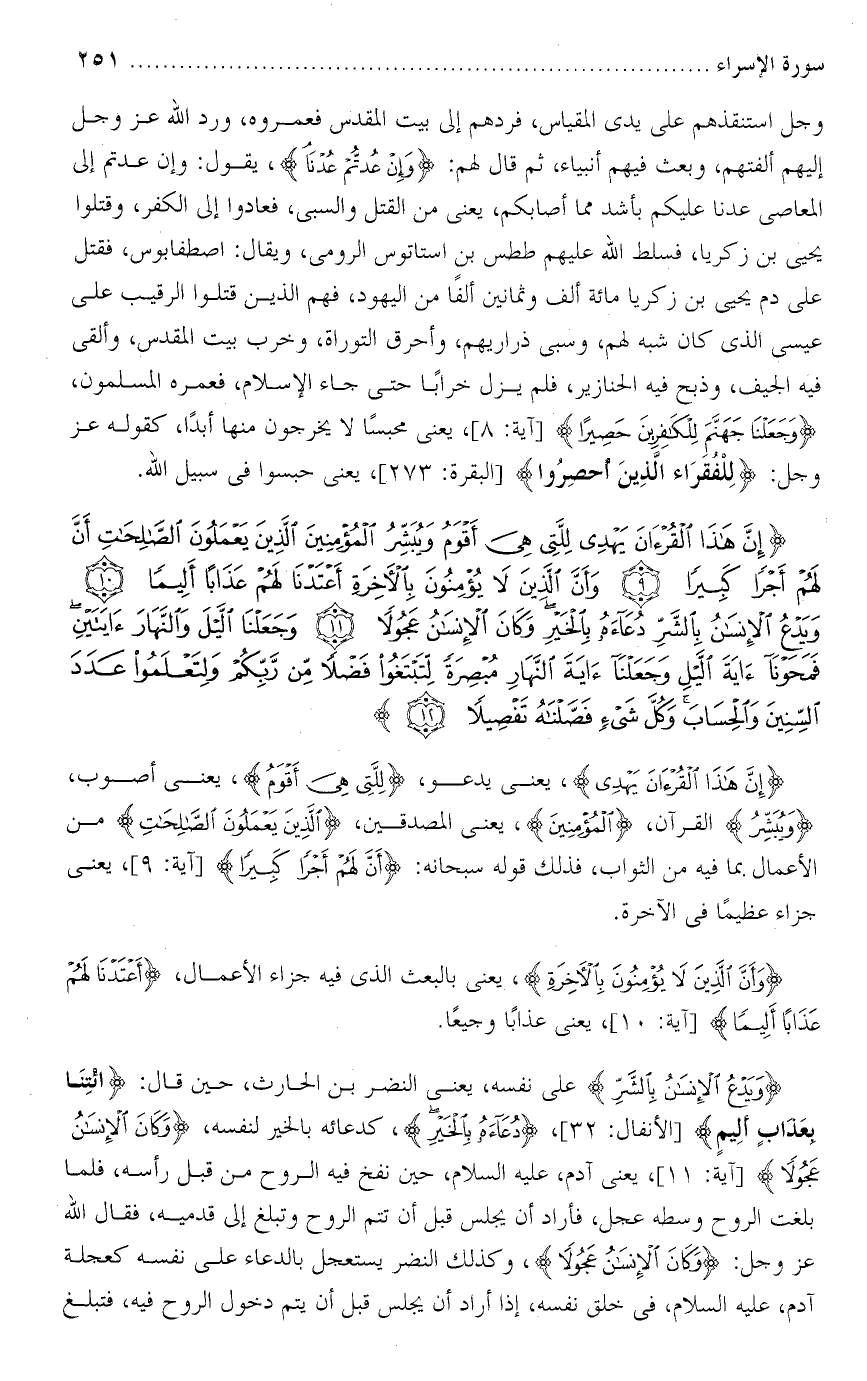 سورة الإسراء ........................................................................ ٢٥١
وجل استنقذهم على يدى المقياس، فردهم إلى بيت المقدس فعمروه، ورد الله عز وجل
إليهم ألفتهم، وبعث فيهم أنبياء، ثم قال لهم: ﴿وَإِنْ عُدتُّمْ عُدْنَا﴾، يقول: وإن عدتم إلى
المعاصى عدنا عليكم بأشد مما أصابكم، يعنى من القتل والسبى، فعادوا إلى الكفر، وقتلوا
يحيى بن زكريا، فسلط الله عليهم ططس بن استاتوس الرومى، ويقال: اصطفابوس، فقتل
على دم يحيى بن زكريا مائة ألف وثمانين ألفًا من اليهود، فهم الذين قتلوا الرقيب على
عيسى الذى كان شبه لهم، وسبى ذراريهم، وأحرق التوراة، وخرب بيت المقدس، وألقى
فيه الجيف، وذبح فيه الخنازير، فلم يزل خرابًا حتى جاء الإسلام، فعمره المسلمون،
﴿وَجَعَلْنَا جَهَنَّمَ لِلْكَٰفِرِينَ حَصِيرًا﴾ [آية: ٨]، يعنى محبسًا لا يخرجون منها أبدًا، كقوله عز
وجل: ﴿لِلْفُقَرَاء الَّذِينَ أُحصِرُوا﴾ [البقرة: ٢٧٣]، يعنى حبسوا فى سبيل الله.
﴿إِنَّ هَٰذَا ٱلْقُرْءَانَ يَهْدِى لِلَّتِى هِىَ أَقْوَمُ وَيُبَشِّرُ ٱلْمُؤْمِنِينَ ٱلَّذِينَ يَعْمَلُونَ ٱلصَّٰلِحَٰتِ أَنَّ
لَهُمْ أَجْرًا كَبِيرًا ٩ وَأَنَّ ٱلَّذِينَ لَا يُؤْمِنُونَ بِٱلْأَخِرَةِ أَعْتَدْنَا لَهُمْ عَذَابًا أَلِيمًا ١٠
وَيَدْعُ ٱلْإِنسَٰنُ بِٱلشَّرِّ دُعَآءَهُۥ بِٱلْخَيْرِۖ وَكَانَ ٱلْإِنسَٰنُ عَجُولًا ١١ وَجَعَلْنَا ٱلَّيْلَ وَٱلنَّهَارَ ءَايَتَيْنِۖ
فَمَحَوْنَآ ءَايَةَ ٱلَّيْلِ وَجَعَلْنَآ ءَايَةَ ٱلنَّهَارِ مُبْصِرَةً لِّتَبْتَغُوا۟ فَضْلًا مِّن رَّبِّكُمْ وَلِتَعْلَمُوا۟ عَدَدَ
ٱلسِّنِينَ وَٱلْحِسَابَۚ وَكُلَّ شَىْءٍ فَصَّلْنَٰهُ تَفْصِيلًا ١٢﴾
﴿إِنَّ هَٰذَا ٱلْقُرْءَانَ يَهْدِى﴾، يعنى يدعو، ﴿لِلَّتِى هِىَ أَقْوَمُ﴾، يعنى أصوب،
﴿وَيُبَشِّرُ﴾ القرآن، ﴿ٱلْمُؤْمِنِينَ﴾، يعنى المصدقين، ﴿ٱلَّذِينَ يَعْمَلُونَ ٱلصَّٰلِحَٰتِ﴾ من
الأعمال بما فيه من الثواب، فذلك قوله سبحانه: ﴿أَنَّ لَهُمْ أَجْرًا كَبِيرًا﴾ [آية: ٩]، يعنى
جزاء عظيمًا فى الآخرة.
﴿وَأَنَّ ٱلَّذِينَ لَا يُؤْمِنُونَ بِٱلْأَخِرَةِ﴾، يعنى بالبعث الذى فيه جزاء الأعمال، ﴿أَعْتَدْنَا لَهُمْ
عَذَابًا أَلِيمًا﴾ [آية: ١٠]، يعنى عذابًا وجيعًا.
﴿وَيَدْعُ ٱلْإِنسَٰنُ بِٱلشَّرِّ﴾ على نفسه، يعنى النضر بن الحارث، حين قال: ﴿ائْتِنَا
بِعَذَابٍ أَلِيمٍ﴾ [الأنفال: ٣٢]، ﴿دُعَآءَهُۥ بِٱلْخَيْرِۖ﴾، كدعائه بالخير لنفسه، ﴿وَكَانَ ٱلْإِنسَٰنُ
عَجُولًا﴾ [آية: ١١]، يعنى آدم، عليه السلام، حين نفخ فيه الروح من قبل رأسه، فلما
بلغت الروح وسطه عجل، فأراد أن يجلس قبل أن تتم الروح وتبلغ إلى قدميه، فقال الله
عز وجل: ﴿وَكَانَ ٱلْإِنسَٰنُ عَجُولًا﴾، وكذلك النضر يستعجل بالدعاء على نفسه كعجلة
آدم، عليه السلام، فى خلق نفسه، إذا أراد أن يجلس قبل أن يتم دخول الروح فيه، فتبلغ